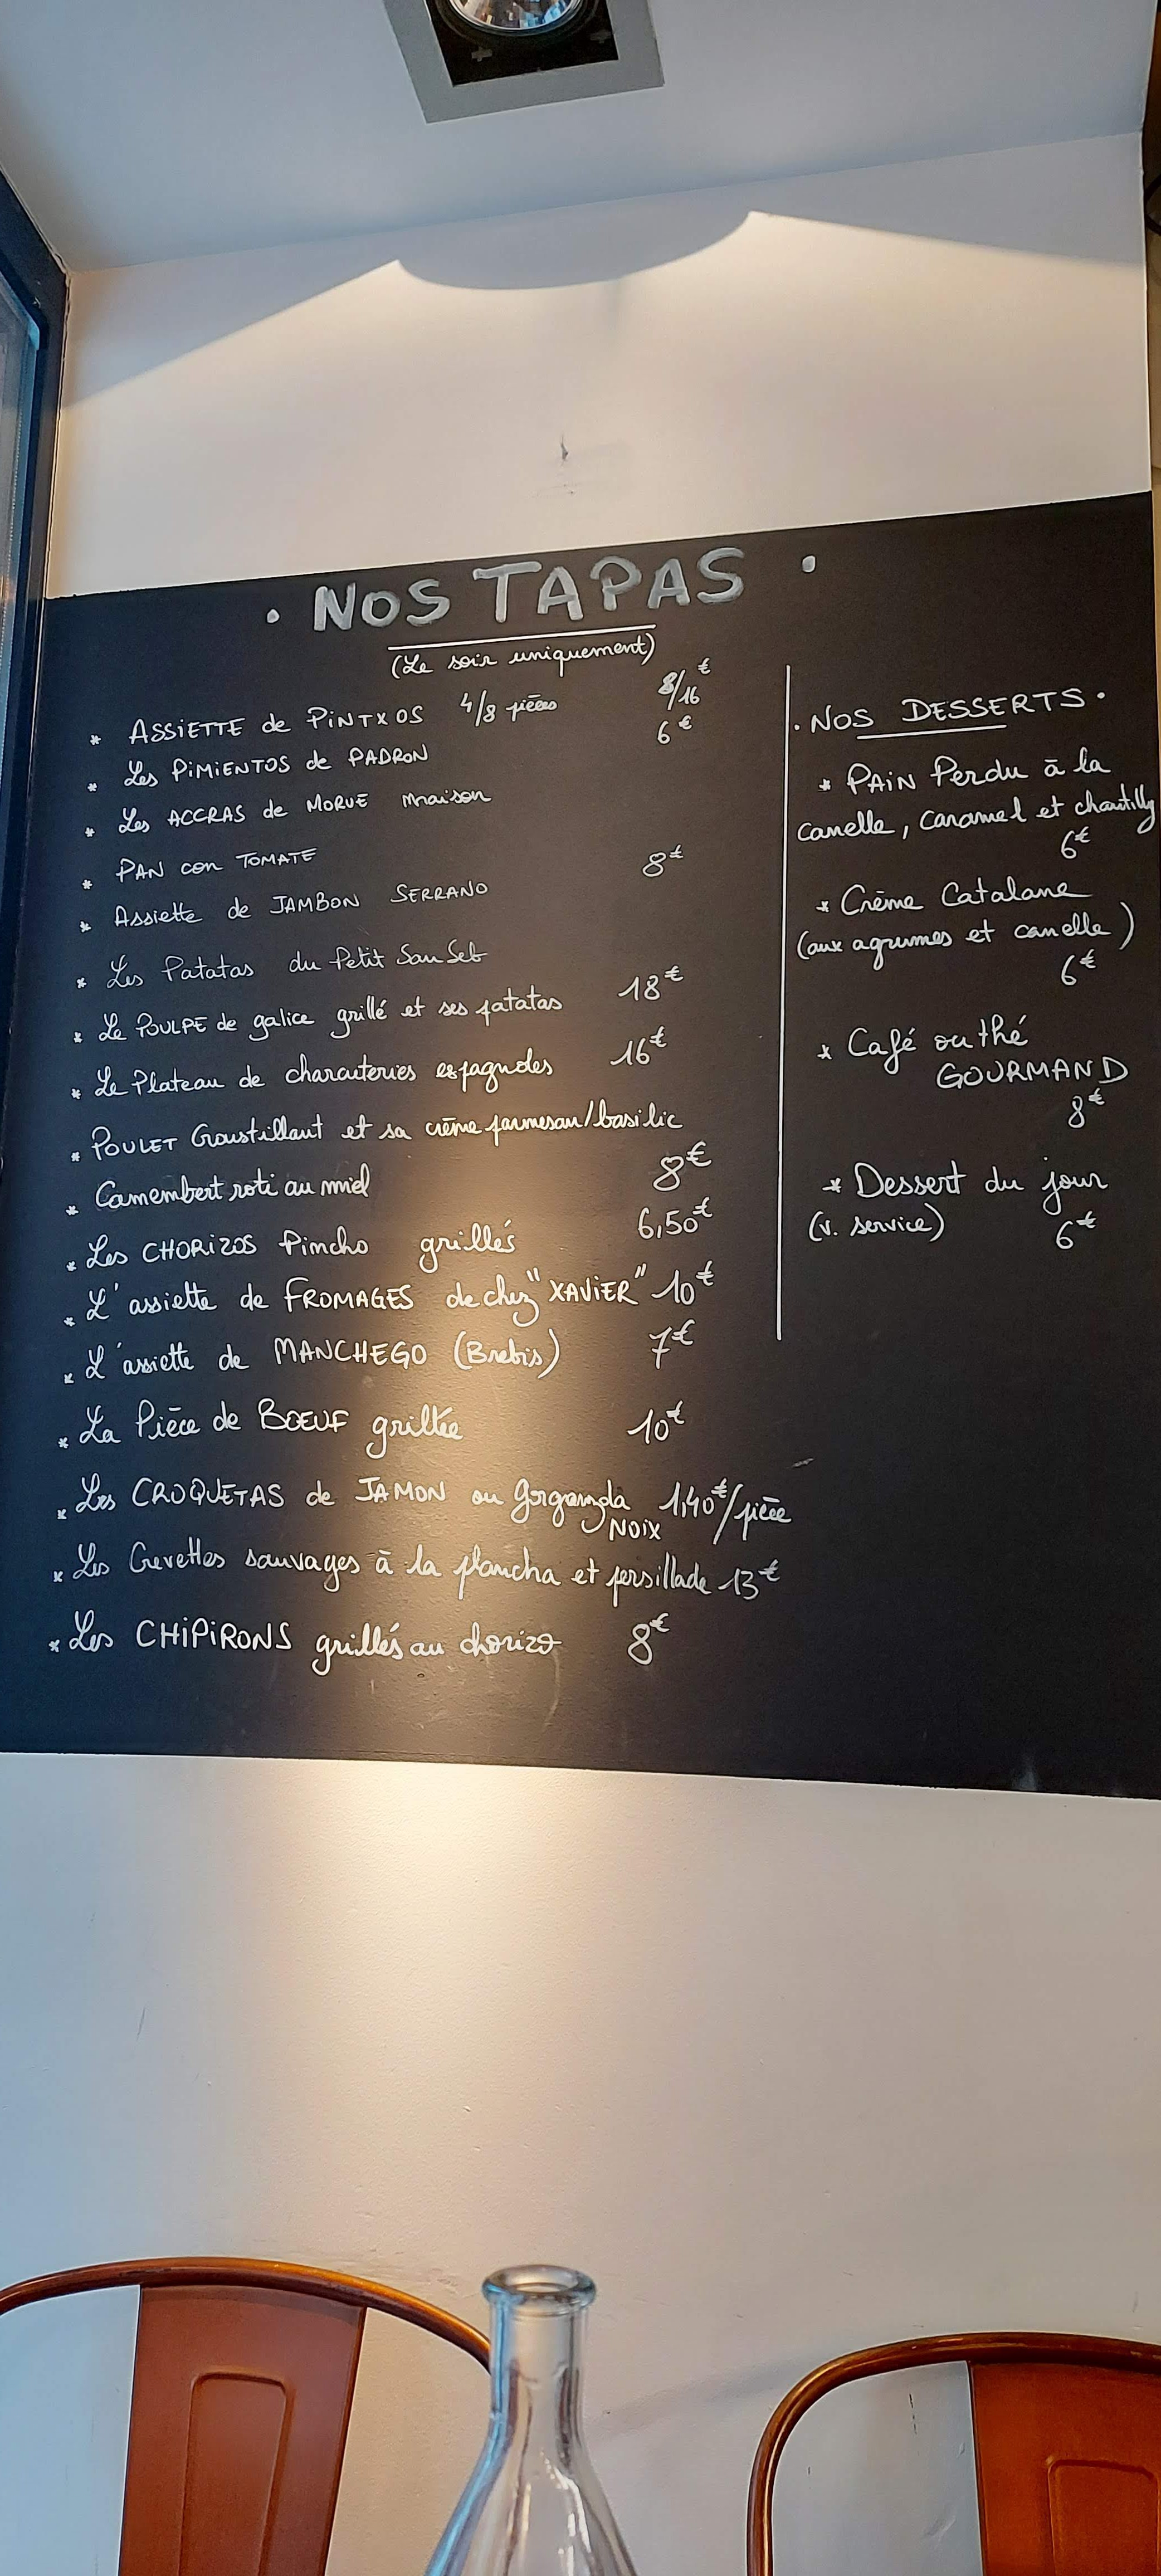 • NOS TAPAS •
(Le soir uniquement)
* ASSIETTE de PINTXOS 4/8 pièces 8/16€
* Les PIMIENTOS de PADRON 6€
* Les ACCRAS de MORUE maison
* PAN con TOMATE
* Assiette de JAMBON SERRANO 8€
* Les Patatas du Petit San Seb
* Le POULPE de galice grillé et ses patatas 18€
* Le Plateau de charcuteries espagnoles 16€
* POULET Croustillant et sa crème parmesan/basilic
* Camembert roti au miel 8€
* Les CHORIZOS Pincho grillés 6,50€
* L'assiette de FROMAGES de chez "XAVIER" 10€
* L'assiette de MANCHEGO (Brebis) 7€
* La Pièce de BOEUF grillée 10€
* Les CROQUETAS de JAMON ou 1,40€/pièce
NOIX
* Les Crevettes sauvages à la plancha et persillade 13€
* Les CHIPIRONS grillés au chorizo 8€
. NOS DESSERTS .
* PAIN Perdu à la
canelle, caramel et chantilly
6€
* Crème Catalane
(aux agrumes et canelle)
6€
* Café ou thé
GOURMAND
8€
* Dessert du jour
(v. service) 6€